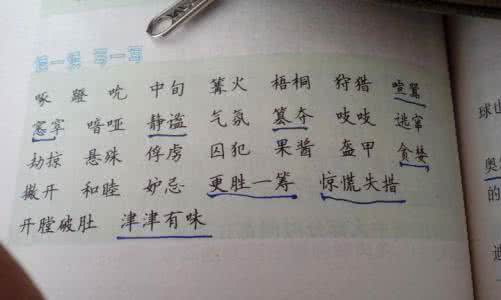 读一读 写一写
啄 蹬 吭 中旬 篝火 梧桐 狩猎 喧嚣
窸窣 喑哑 静谧 气氛 篡夺 吱吱 逃窜
劫掠 悬殊 俘虏 囚犯 果酱 盔甲 贪婪
撇开 和睦 妒忌 更胜一筹 惊慌失措
开膛破肚 津津有味
奥
的